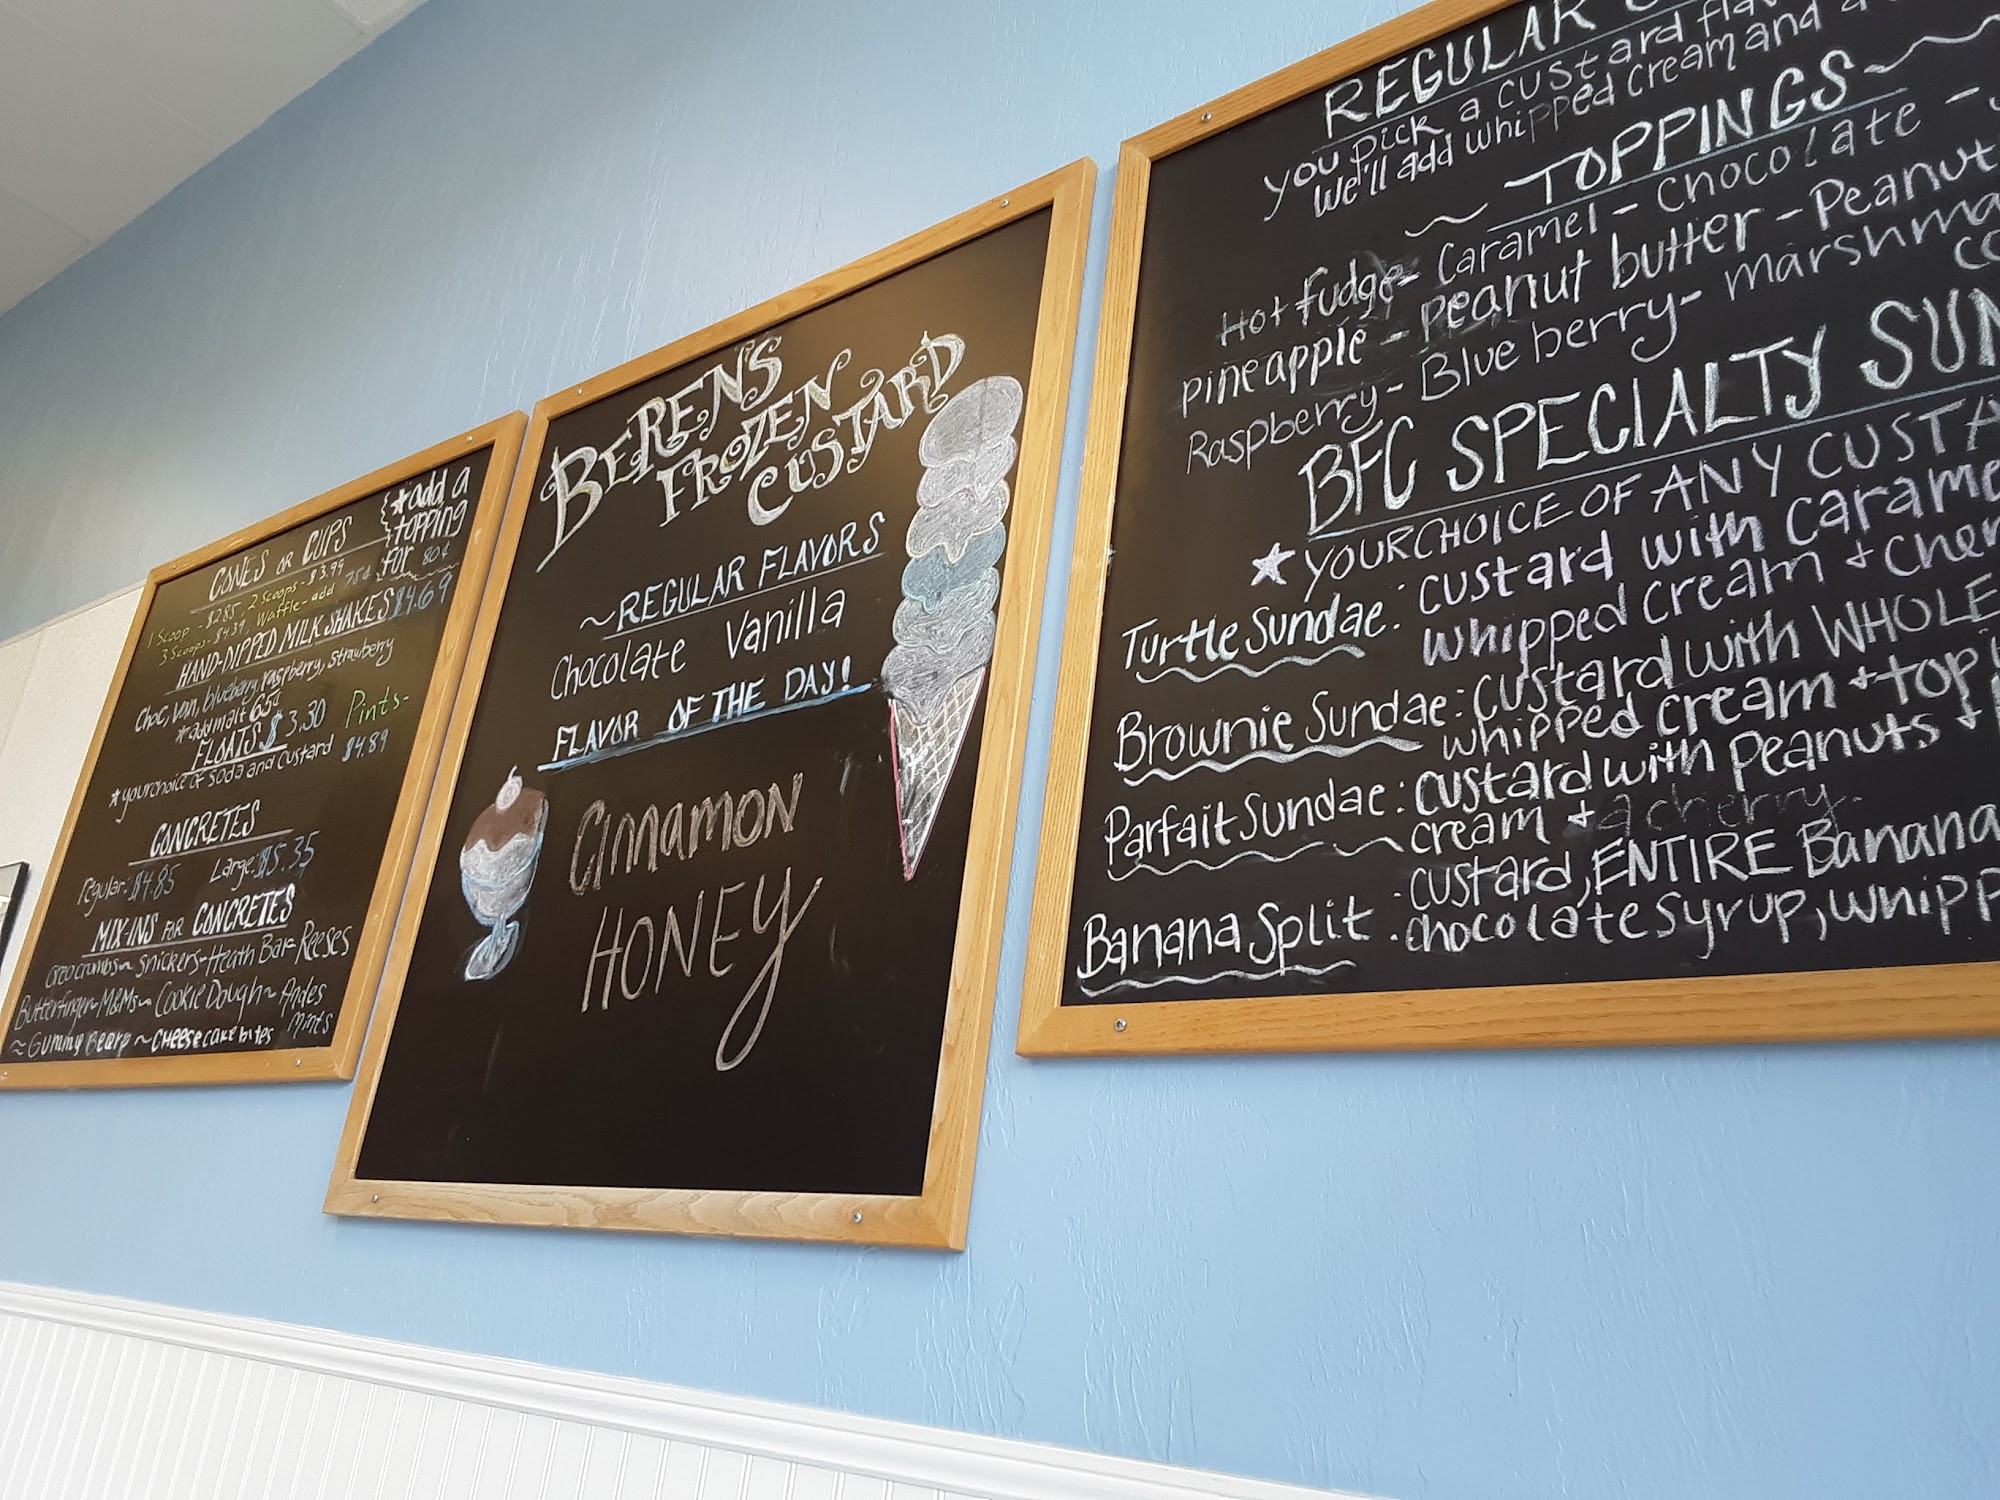 CONES OR CUPS
1 Scoop - $2.85, 2 Scoops - $3.99
3 Scoops - $4.39, Waffle - add 75¢
*add a
topping
for 80¢
HAND-DIPPED MILK SHAKES $4.69
Choc, van, blueberry, raspberry, strawberry
*add malt 65¢
FLOATS $3.50
*your choice of soda and custard
Pints-
$4.89
CONCRETES
Regular: $4.85 Large: $5.35
MIX-INS FOR CONCRETES
Oreo crumbs~ Snickers~ Heath Bar~ Reeses
Butterfinger~ M&Ms~ Cookie Dough~ Andes
Mints
~ Gummy Bears ~ Cheesecake bites
BEREN'S
FROZEN
CUSTARD
~REGULAR FLAVORS
Chocolate Vanilla
FLAVOR OF THE DAY!
Cinnamon
HONEY
REGULAR
you pick a custard
We'll add whipped cream and a
~ TOPPINGS ~
Hot fudge - Caramel - Chocolate -
pineapple - peanut butter - Peanut
Raspberry - Blueberry -
BFC SPECIALTY
★ YOUR CHOICE OF ANY
Turtle Sundae: custard with
whipped cream +
Brownie Sundae: custard with WHOLE
whipped cream +
Parfait Sundae: custard with peanuts +
cream + a cherry.
Banana Split: custard, ENTIRE Banana
chocolate syrup,